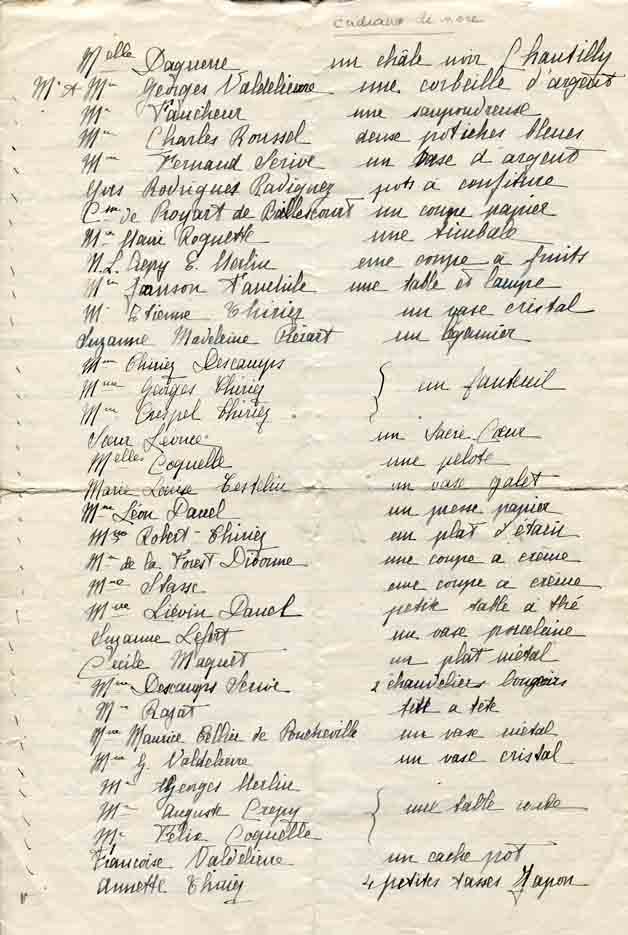 cadeaux de noce
Melle Daguerre un châle noir Chantilly
Mr & Mme Georges Valdelievre une corbeille d'argent
Mr Faucheur une saupoudreuse
Mme Charles Roussel deux potiches bleues
Mme Fernand Scrive un vase d'argent
Rodrigues pots à confiture
Csse de Proyart de Baillescourt un coupe papier
Mme Roquette une timbale
Crepy E. Merlin une coupe a fruits
Mme une table et lampe
Mr Etienne Thiriez un vase cristal
Suzanne Madeleine un
Mme Thiriez Descamps
Mme Georges Thiriez un fauteuil
Mme Crespel Thiriez
Sœur Léonce un Sacré-Cœur
Melles Coquelle une pelote
Marie Louise Testelin un vase galet
Mme Léon Danel un presse papier
Mme Robert-Thiriez un plat d'étain
Mme de la Forest Divonne une coupe a crème
Mme Stasse une coupe a crème
Mme Liévin Danel petite table à thé
Suzanne Lefort un vase porcelaine
Cécile Maquet un plat métal
Mme Descamps Scrive 2 chandeliers
Mme Rajat tête a tête
Mme Maurice Tellier de Poncheville un vase métal
Mme G Valdelievre un vase cristal
Mme Georges Merlin
Mme Auguste Crepy une table ronde
Mme Félix Coquelle
Francoise Valdelievre un cache pot
Annette Thiriez 4 petites tasses Japon